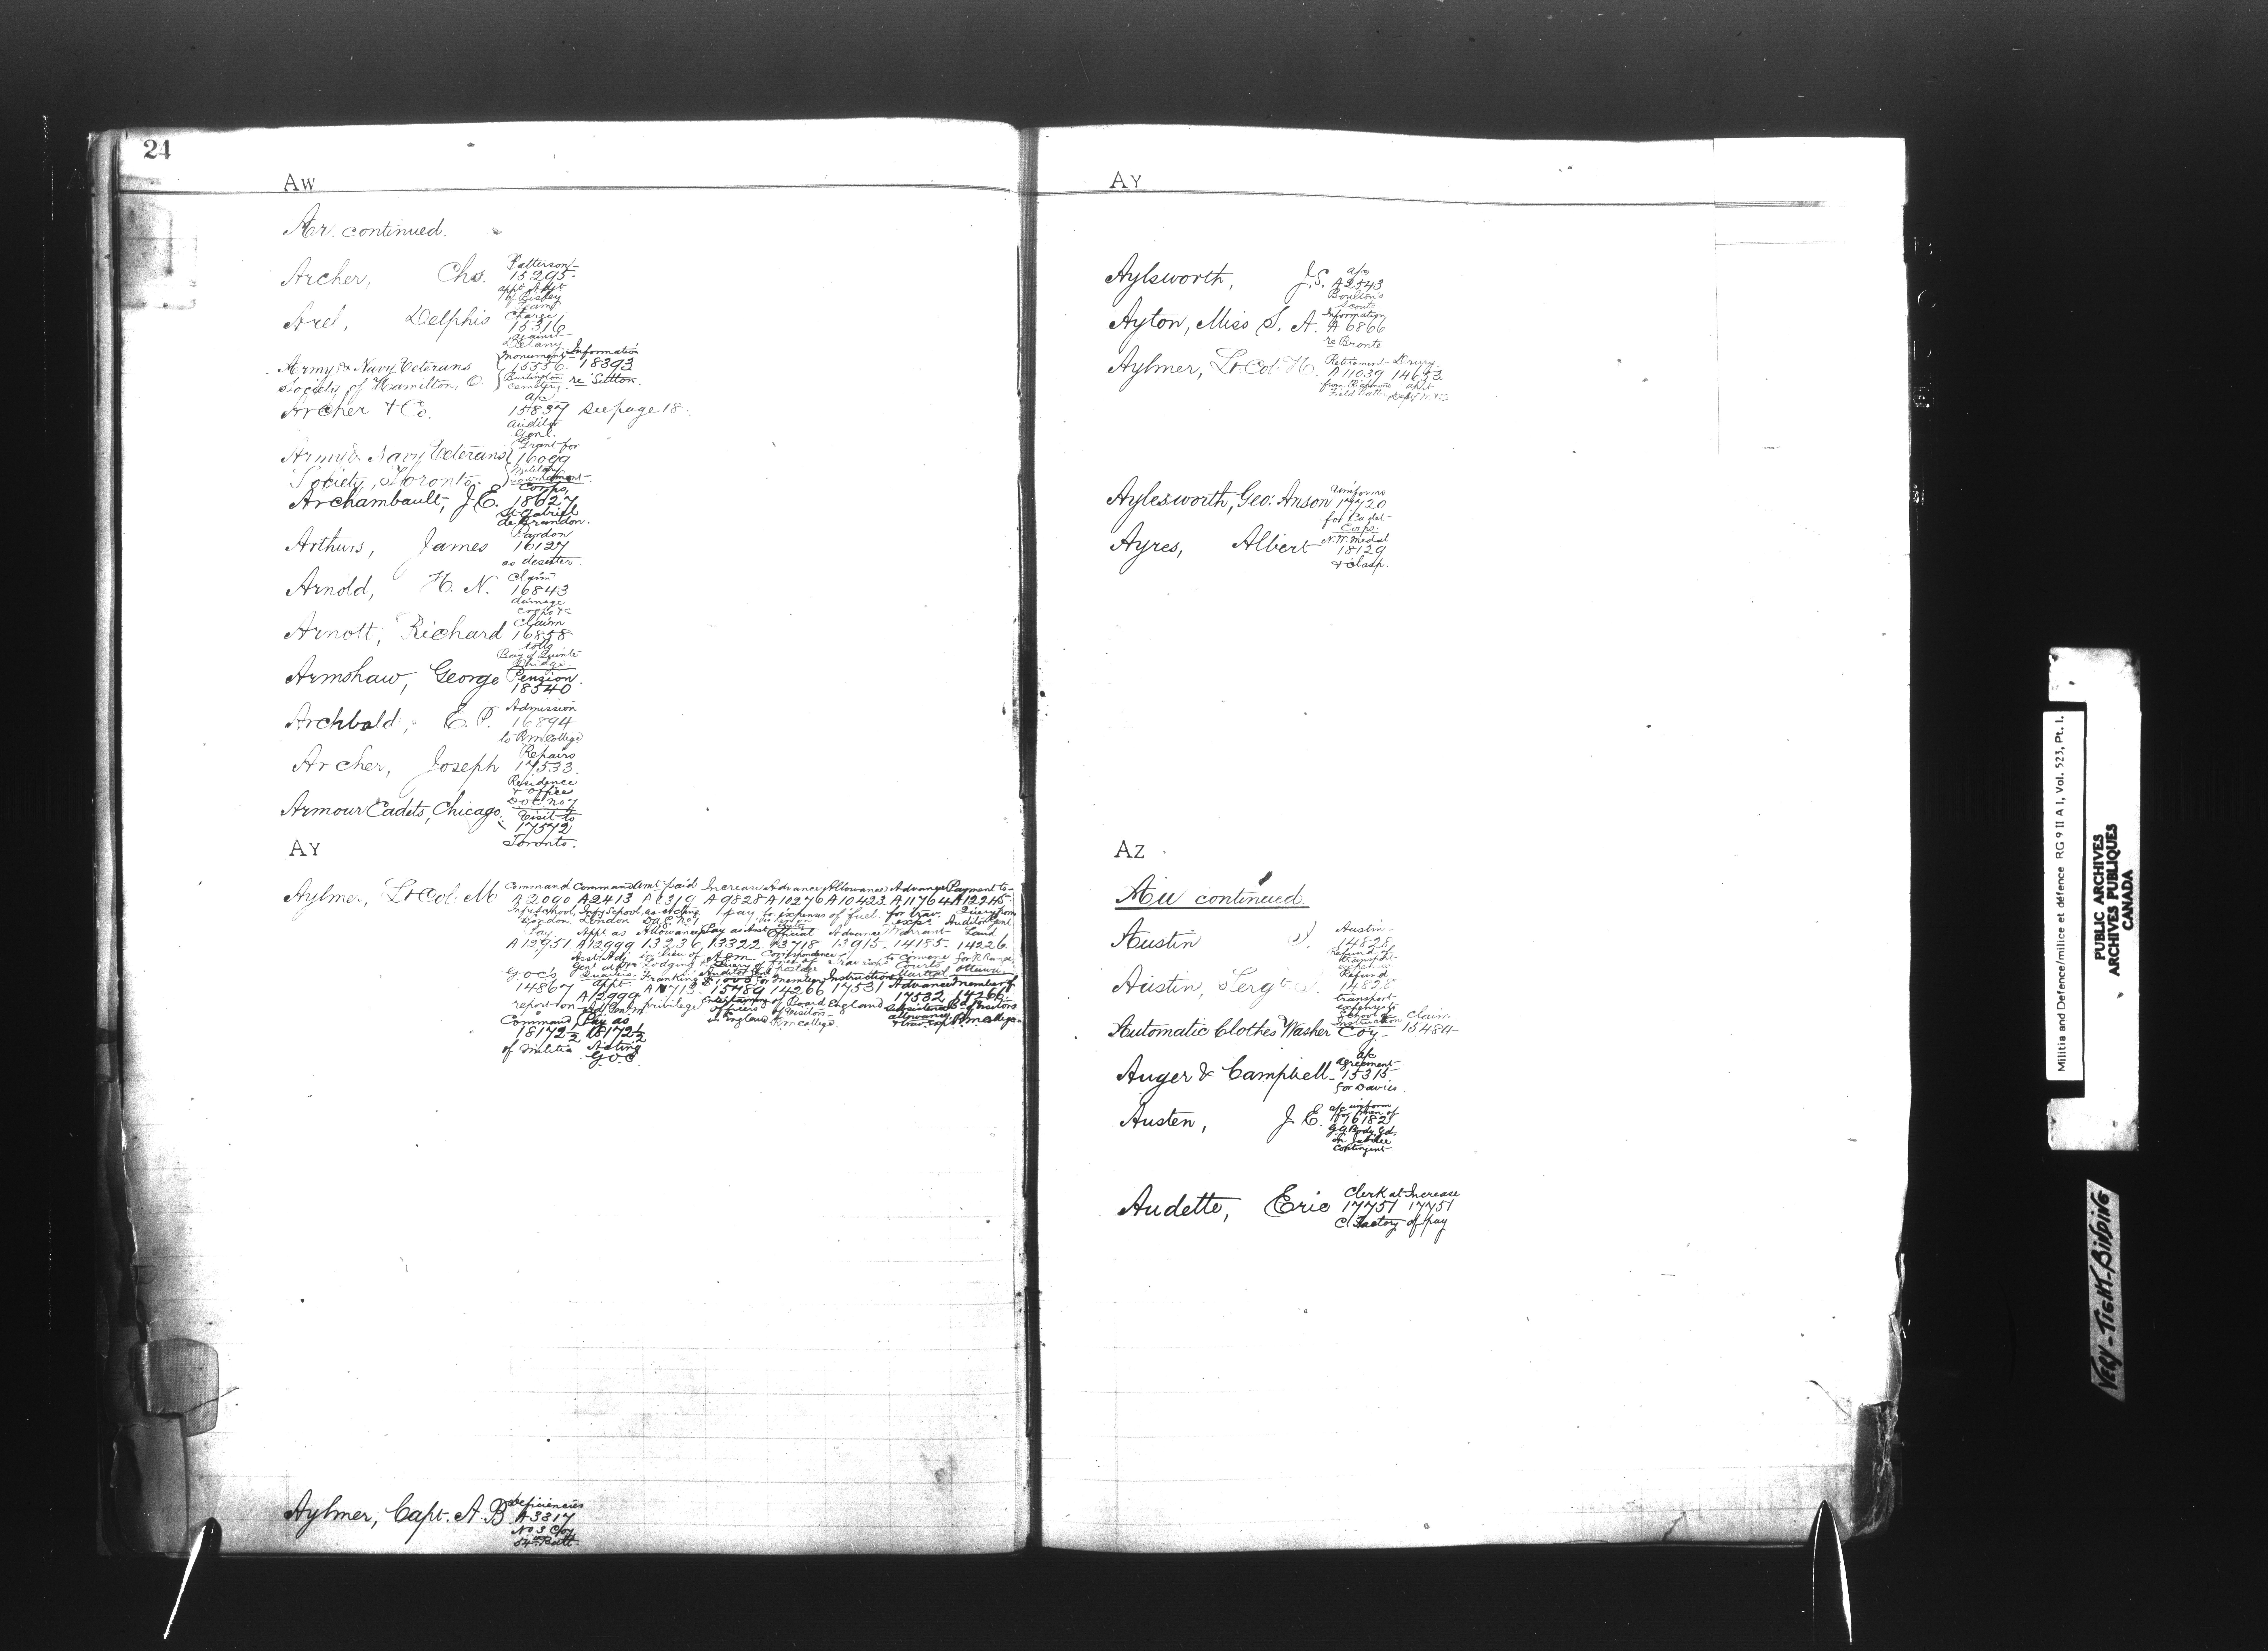 24
Aw
Ar. continued.
Patterson
Archer, Chs. 15295
appt Adjt
of Bisley
Team
Charge
Arel, Delphis 15316
against
Delany
Monument Information
Army & Navy Veterans 15536 18393
Society of Hamilton, O. Burlington re Sutton.
Cemetry
a/c
Archer & Co. 15837 see page 18.
Auditor
Genl.
Grant for
Army & Navy Veterans 16099
Society, Toronto. Military
Tournament
Corps,
Archambault, J. E. 18627
St. Gabriel
de Brandon.
Pardon
Arthurs, James 16127
as deserter.
Claim
Arnold, H. N. 16843
damage
crops &c
Claim
Arnott, Richard 16858
tolls
Bay of Quinte
Bridge
Armshaw, George Pension.
18540
Admission
Archbald, E. P. 16894
to R M College
Repairs
Archer, Joseph 17533.
Residence
& office
D.O.C. No 7
Armour Cadets, Chicago. Visit to
17572
Toronto.
AY
Command Command Amt. paid Increase Advance Allowance Advance Payment to
Aylmer, Lt. Col. M. A 2090 A 2413 A 6319 A 9828 A 10276 A 10423 A 11764 A 12245
Inf School, Inf School, as acting pay. for expenses of fuel. for trav. Query from
London. London D.A.G. No 1 exps. Auditor Genl
Pay. Appt as Allowance Pay as Asst Official Advance Warrant Land
A 12951 A 12999 13236 13322 13718 13915. 14185. 14226
Asst. Adj. in lieu of A.G.M. Correspondence trav exps to convene for R. Range,
Genl at Hd Qrs lodging Query of free of Courts Ottawa.
G.O.C's Quarters. Franking Auditor Genl postage Martial
appt. $1,000 for member Instructions Advance member of
14867 A 12999 A 10713 15789 14266 17531 17532 14266
report on Adj. Gen. m. privilege Entertaining of Board England Subsistence Bd of Visitors
officers of Visitors allowance
in England R.M. College. & trav. exps R.M. College.
Command Pay as
18172½ 18172½
of Militia Acting
G.O.C.
Deficiencies
Aylmer, Capt. A. B. A 3317
No 3 Coy
54th Batt.
AY
a/c
Aylsworth, J. S. A 2543
Boulton's
Scouts
Information
Ayton, Miss S. A. A 6866
re Bronte
Retirement Drury
Aylmer, Lt. Col. H. A 11039 14653
from Richmond appt
Field Batt.
Uniforms
Aylesworth, Geo: Anson 17720
for Cadet
Corps.
N.W. medal
Ayres, Albert 18129
& clasp.
AZ
Au continued.
Austin
Austin S. 14828
Refund
transport
expenses
Refund
Austin, Sergt S. 14828
transport
exps to
School of
Instruction Claim
Automatic Clothes Washer Coy. 15484
a/c
agreement
Auger & Campbell 15315
for Davies
a/c uniform
for men of
Austen, J. E. 16182
G.G. Body Gd.
in Jubilee
Contingent
Clerk at Increase
Audette, Eric 17751 17751
C. Factory of pay
Militia and Defence/milice et défence RG 9 II A 1, Vol. 523, Pt. I.
PUBLIC ARCHIVES
ARCHIVES PUBLIQUES
CANADA
VERY-TIGHT-BINDING